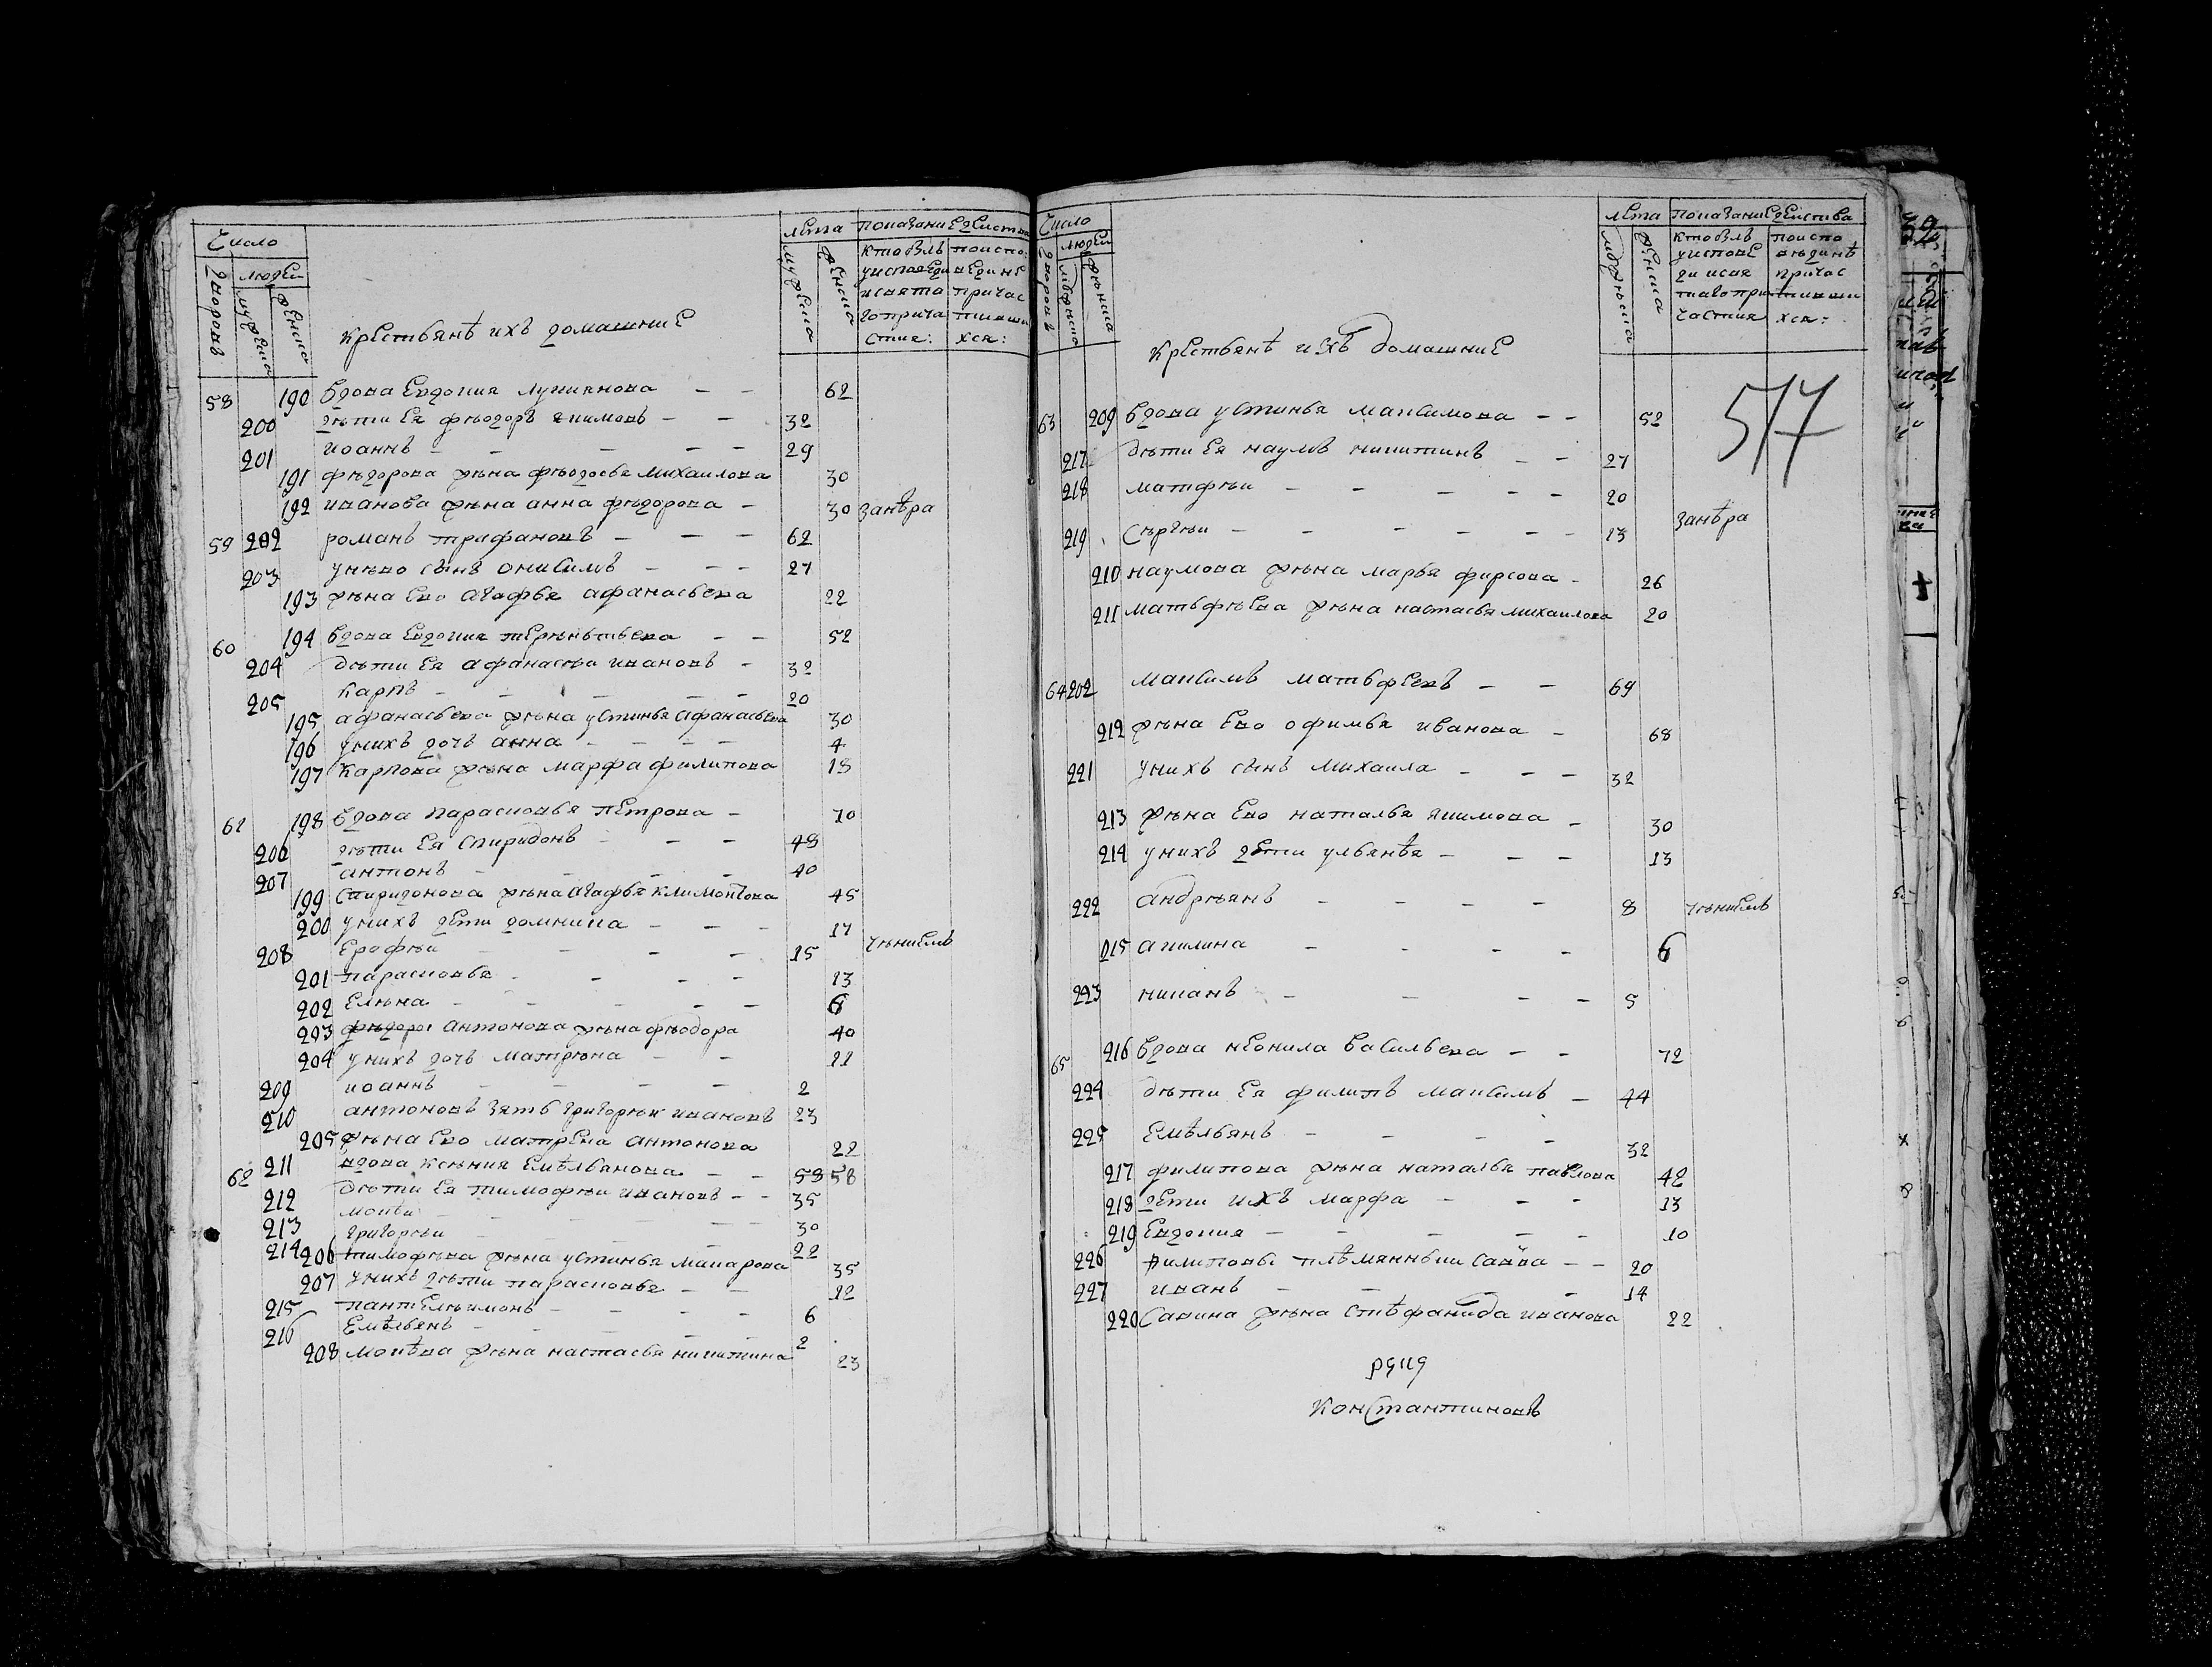 Число
дворовъ
людеи
мужеска
женска
крестьянѣ ихъ домашние
лета
мужеска
женска
показание деиства
кто былъ
у исповеди
и святаго
причастия:
по исповедине
причастившихся:
58 190 вдова Евдокия лукиянова — — 62
200 дѣти Ея фѣодоръ якимовъ — — 32
201 иоаннъ — — — — 29
191 фѣдорова жѣна фѣодосья михаилова 30
192 иванова жѣна анна фѣдорова — 30 занѣра
59 202 романъ трифановъ — — — 62
203 у нѣво сынъ Онисимъ — — — 27
193 жѣна Ево агафья афанасьева 22
60 194 вдова Евдокия терѣнътьева — — 52
204 дѣти Ея афанасѣи ивановъ — 32
205 карпъ — — — — — 20
195 афанасьева жѣна устинья афанасьева 30
196 у нихъ дочь анна — — — — 4
197 карпова жѣна марфа филипова 18
61 198 вдова парасковья пЕтрова — 70
206 дѣти Ея спиридонъ — — — 48
207 антонъ — — — — 40
199 спиридонова жѣна агафья климонтова 45
200 у нихъ дети домника — — — 17
208 Ерофѣи — — — — 15
201 парасковья — — — — 13
202 Елѣна — — — — — 6
203 антонова жѣна фѣодора 40
204 у нихъ дочь матрѣна — — 11
209 иоаннъ — — — — 2
210 антоновъ зять григорѣи ивановъ 23
205 жѣна Ево матрЕна антонова 22
62 211 вдова ксѣния Емѣльянова — — 58 58
212 дѣти Ея тимофѣи ивановъ — — 35
213 мокѣи — — — — — 30
214 григорѣи — — — — 22
206 тимофѣва жѣна устинья макарова 35
207 у нихъ дѣти парасковья — — 12
215 пантЕлѣимонъ — — — — 6
216 Емѣльянъ — — — — — 2
208 мокѣва жѣна настасья никитина 23
Число
дворовъ
людеи
мужеска
женска
крестьянѣ ихъ домашние
лета
мужеска
женска
показание деиства
кто былъ
у исповеди
и свя
таго при
частия
по испо
вѣдинѣ
причас
тивши
хся:
577
63 209 вдова устинья максимова — — 52
217 дѣти Ея наумъ никитинъ — — 27
218 матфѣи — — — — — 20
219 Сѣргѣи — — — — — 13 занѣра
210 наумова жѣна марья фирсова — 26
211 матьфѣЕва жѣна настасья михаилова 20
64 202 максимъ матьфЕевъ — — 69
212 жѣна Ево офимья иванова — 68
221 у нихъ сынъ михаила — — — 32
213 жѣна Ево наталья якимова — 30
214 у нихъ дети ульянѣя — — — 13
222 андрѣянъ — — — — 8
215 акилина — — — — 6
223 никанъ — — — — 5
65 216 вдова неонила васильева — — 72
224 дѣти Ея филипъ максимъ — 44
225 Емѣльянъ — — — — 32
217 филипова жѣна наталья павлова 42
218 дети ихъ марфа — — — 13
219 Евдокия — — — — — 10
226 Филиповы плѣмянныки савва — — 20
227 иванъ — — — — 14
220 савина жѣна стѣфанида иванова 22
Константиновъ